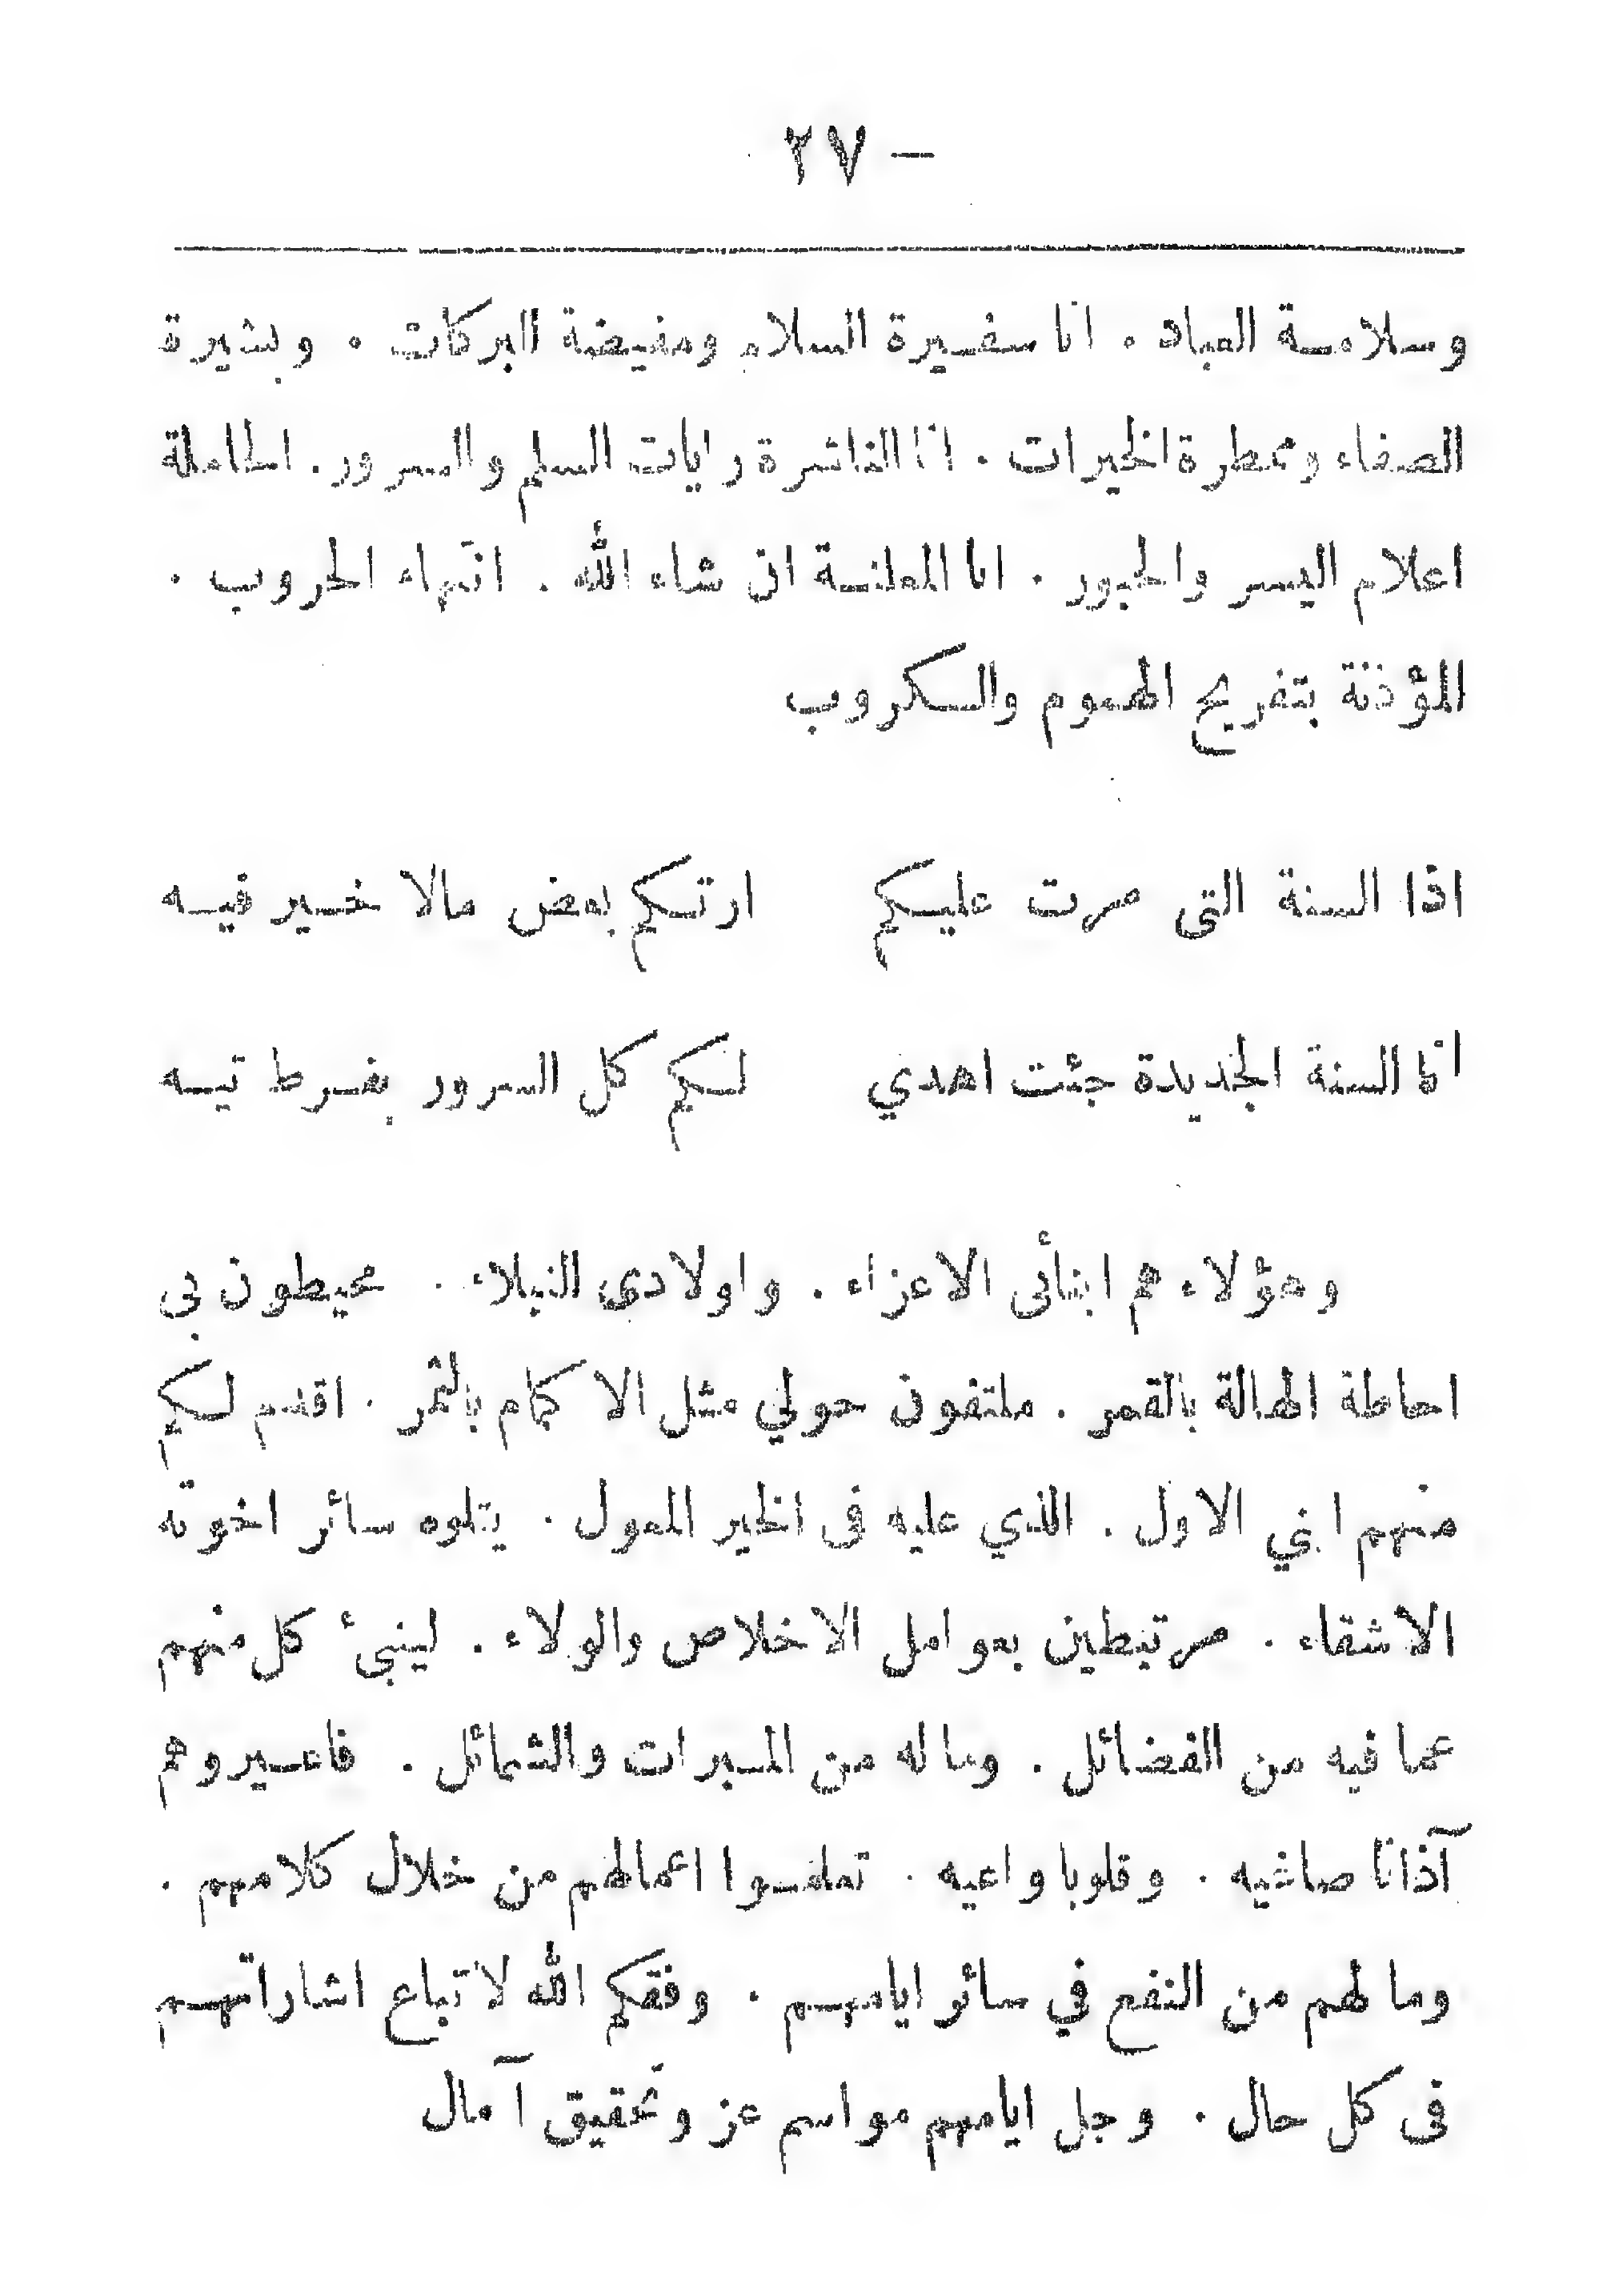 — ٢٧
وسلامة العباد . انا سفيرة السلام ومفيضة البركات . وبشيرة
الصفاء وممطرة الخيرات . انا الناشرة رايات السلم والسرور . الحاملة
اعلام اليسر والحبور . انا المعلنة ان شاء الله . انتهاء الحروب .
المؤذنة بتفريج الهموم والكروب
اذا السنة التى مرت عليكم ارتكم بعض مالا خير فيه
انا السنة الجديدة جئت اهدي لكم كل السرور بفرط تيه
وهؤلاء هم ابنائى الاعزاء . واولادى النبلاء . محيطون بى
احاطة الهالة بالقمر . ملتفون حولي مثل الاكمام بالثمر . اقدم لكم
منهم ابني الاول . الذي عليه فى الخير المعول . يتلوه سائر اخوته
الاشقاء . مرتبطين بعوامل الاخلاص والولاء . لينبئ كل منهم
عما فيه من الفضائل . وما له من المبرات والشمائل . فاعيروهم
آذانا صاغيه . وقلوبا واعيه . تعلمسوا اعمالهم من خلال كلامهم .
وما لهم من النفع في سائر ايامهم . وفقكم الله لاتباع اشاراتهم
فى كل حال . وجل ايامهم مواسم عز وتحقيق آمال